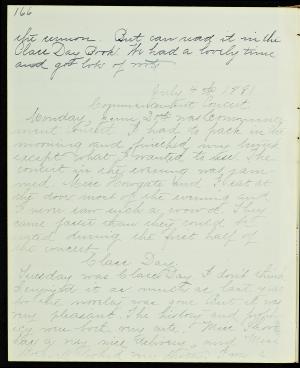 166
the reunion. But can read it in the
Class Day Book. We had a lovely time
and got lots of notes
July 4th 1881
Commencement Concert
Monday, June 27th was Commence
ment Concert. I had to pack in the
morning and finished my trunk
except what I wanted to use. The
concert in the evening was jam
med. Miss and I sat at
the door most of the evening and
I never saw such a crowd. They
came faster than they could be
seated during the first half of
the concert.
Class Day.
Tuesday was Class Day. I don't think
I enjoyed it as much as last year
for the novelty was gone but it was
very pleasant. The history and proph
ecy were both very cute. Miss
has a very nice delivery, and Miss